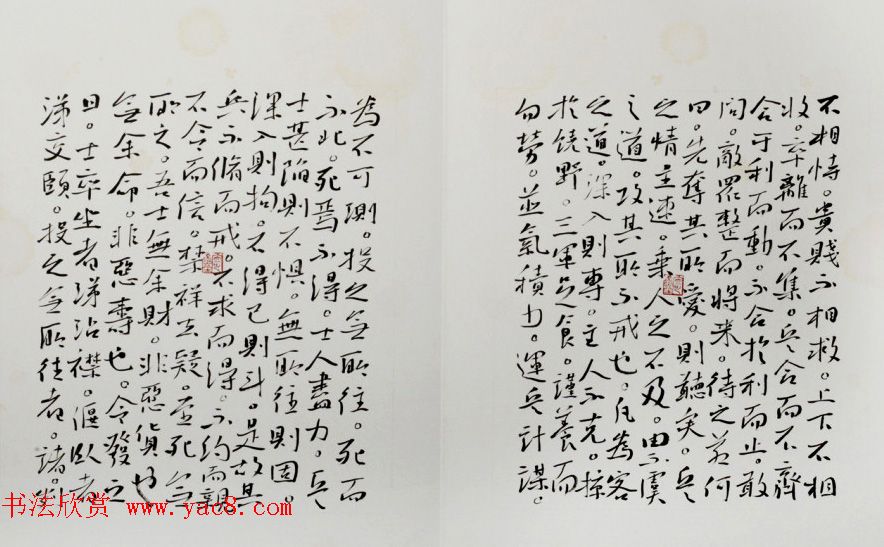 不相恃。貴賤不相救。上下不相
收。卒離而不集。兵合而不齊
合于利而動。不合於利而止。敢
問。敵眾整而將來。待之若何
曰。先奪其所愛。則聽矣。兵
之情主速。乘人之不及。由不虞
之道。攻其所不戒也。凡為客
之道。深入則專。主人不克。掠
於饒野。三軍足食。謹養而
勿勞。並氣積力。運兵計謀。
為不可測。投之無所往。死而
不北。死焉不得。士人盡力。兵
士甚陷則不懼。無所往則固。
深入則拘。不得已則斗。是故其
兵不脩而戒。不求而得。不約而親
不令而信。禁祥去疑。至死無
所之。吾士無余財。非惡貨也
無余命。非惡壽也。令發之
日。士卒坐者涕沾襟。偃臥者
涕交頤。投之無所往者。諸劌
书法欣赏 www.yac8.com